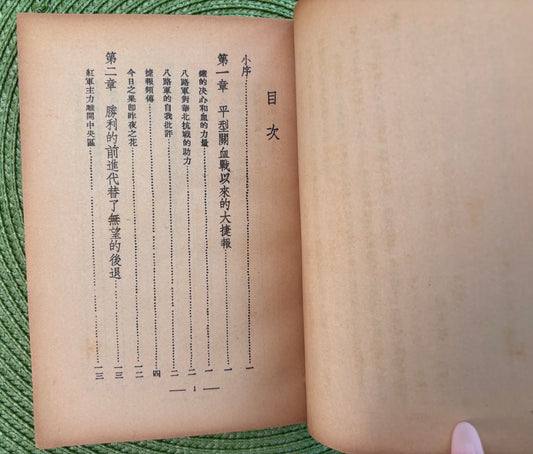 目次
小序……一
第一章 平型關血戰以來的大捷報……一
鐵的決心和血的力量……一
八路軍對華北抗戰的助力……二
八路軍的自我批評……二
捷報頻傳……四
今日之果卽昨夜之花……一二
第二章 勝利的前進代替了無望的後退……一三
紅軍主力離開中央區……一三
— 1 —